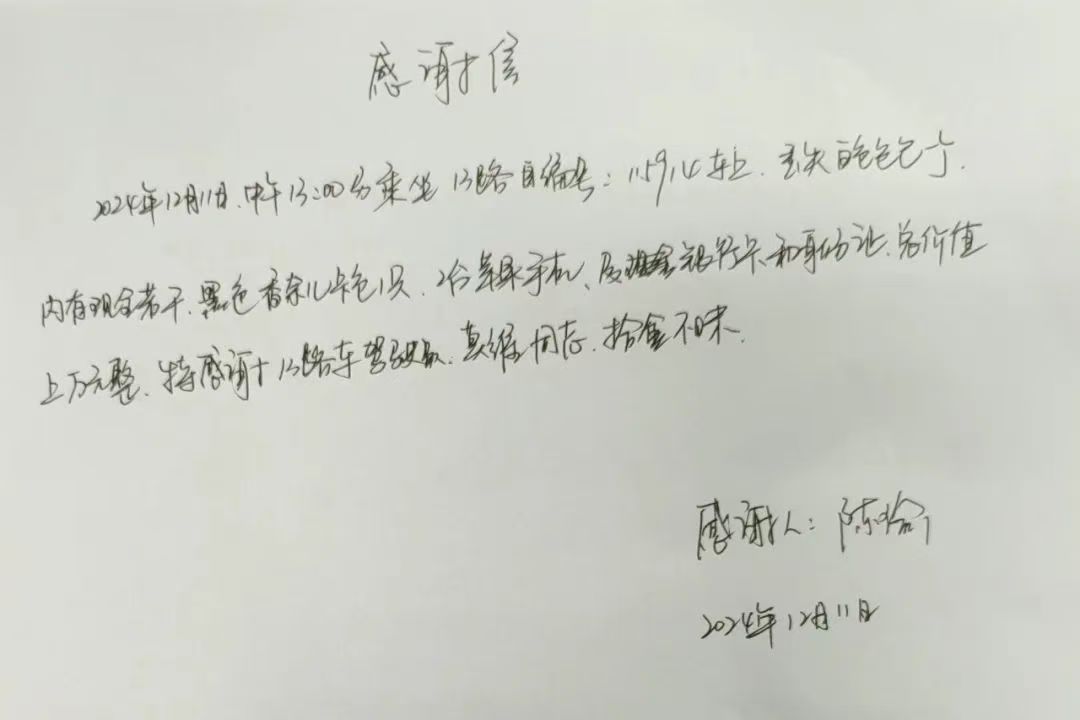 感谢信
2024年12月11日.中午13:00分乘坐 13路自编号:11591,4车上.丢失白色包包一个.
内有现金若干.黑色香奈儿卡包1只.2台苹果手机、及银行卡、和身份证.总价值
上万元整.特感谢13路车驾驶员.同志.拾金不昧.
感谢人:陈
2024年12月11日